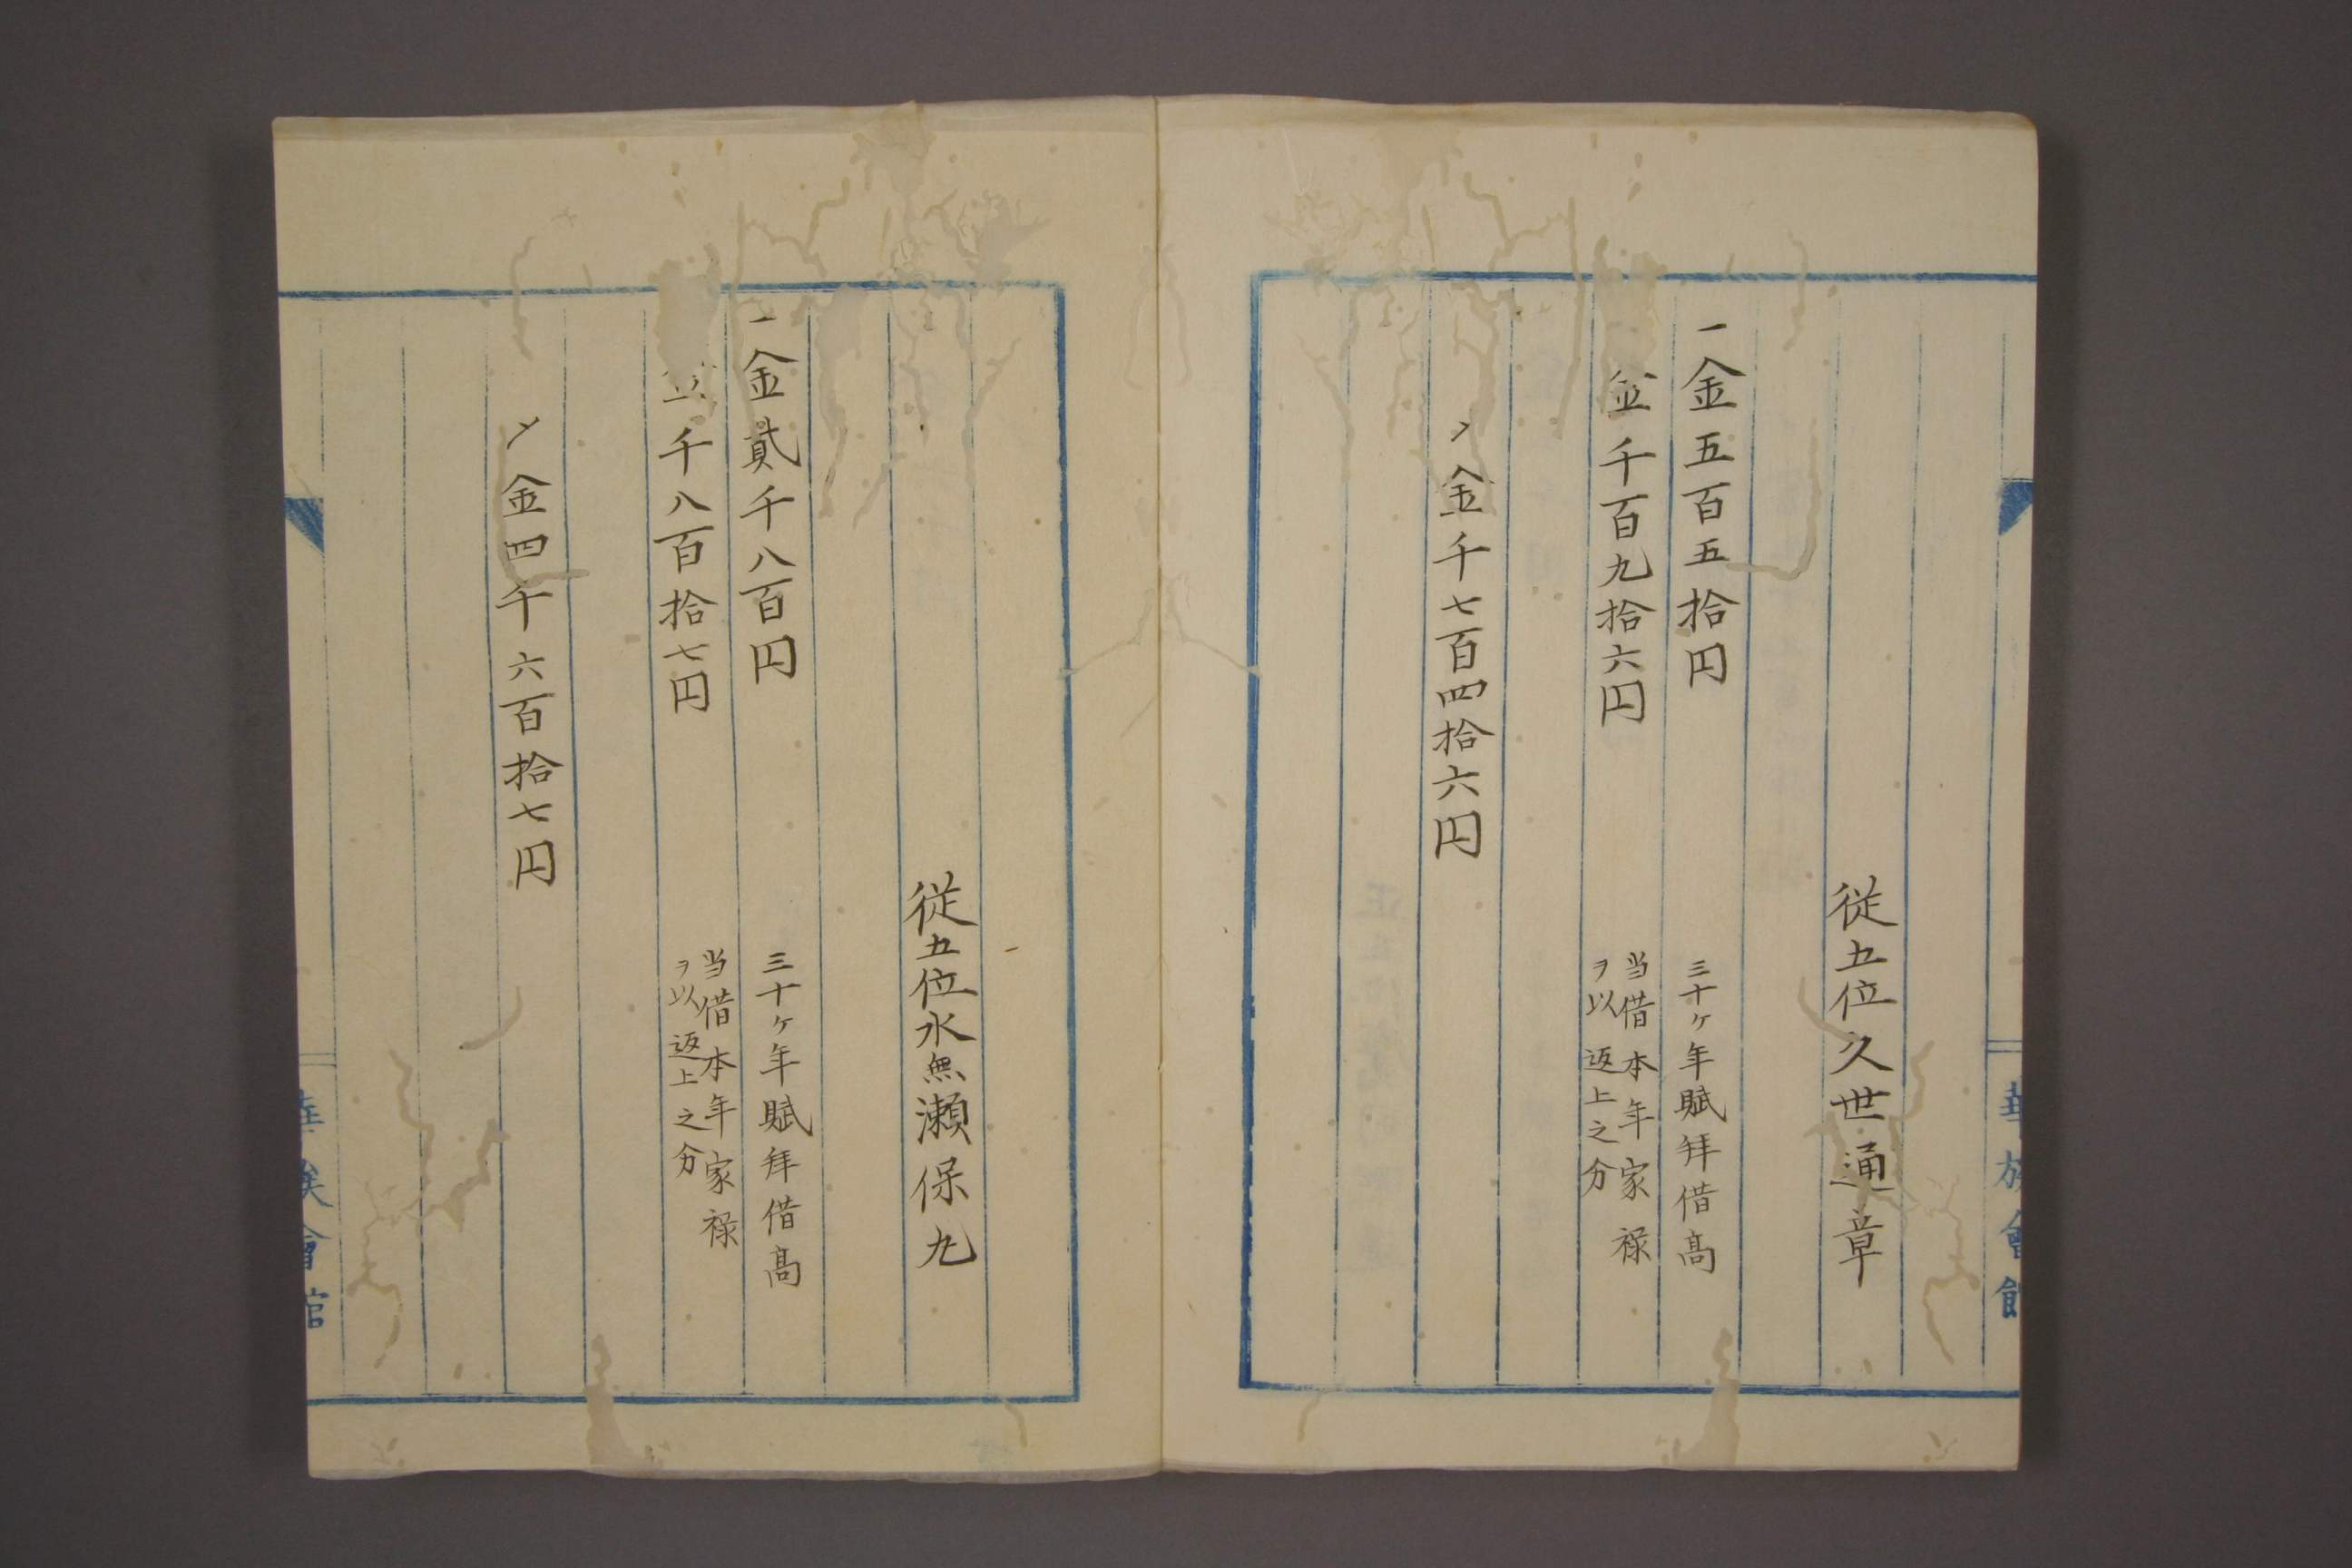 華族會館
従五位久世通章
一金五百五拾円
三十ヶ年賦拜借高
金千百九拾六円
当借本年家禄
ヲ以返上之分
〆金千七百四拾六円
従五位水無瀬保丸
一金貳千八百円
三十ヶ年賦拜借高
金千八百拾七円
当借本年家禄
ヲ以返上之分
〆金四千六百拾七円
華族會館